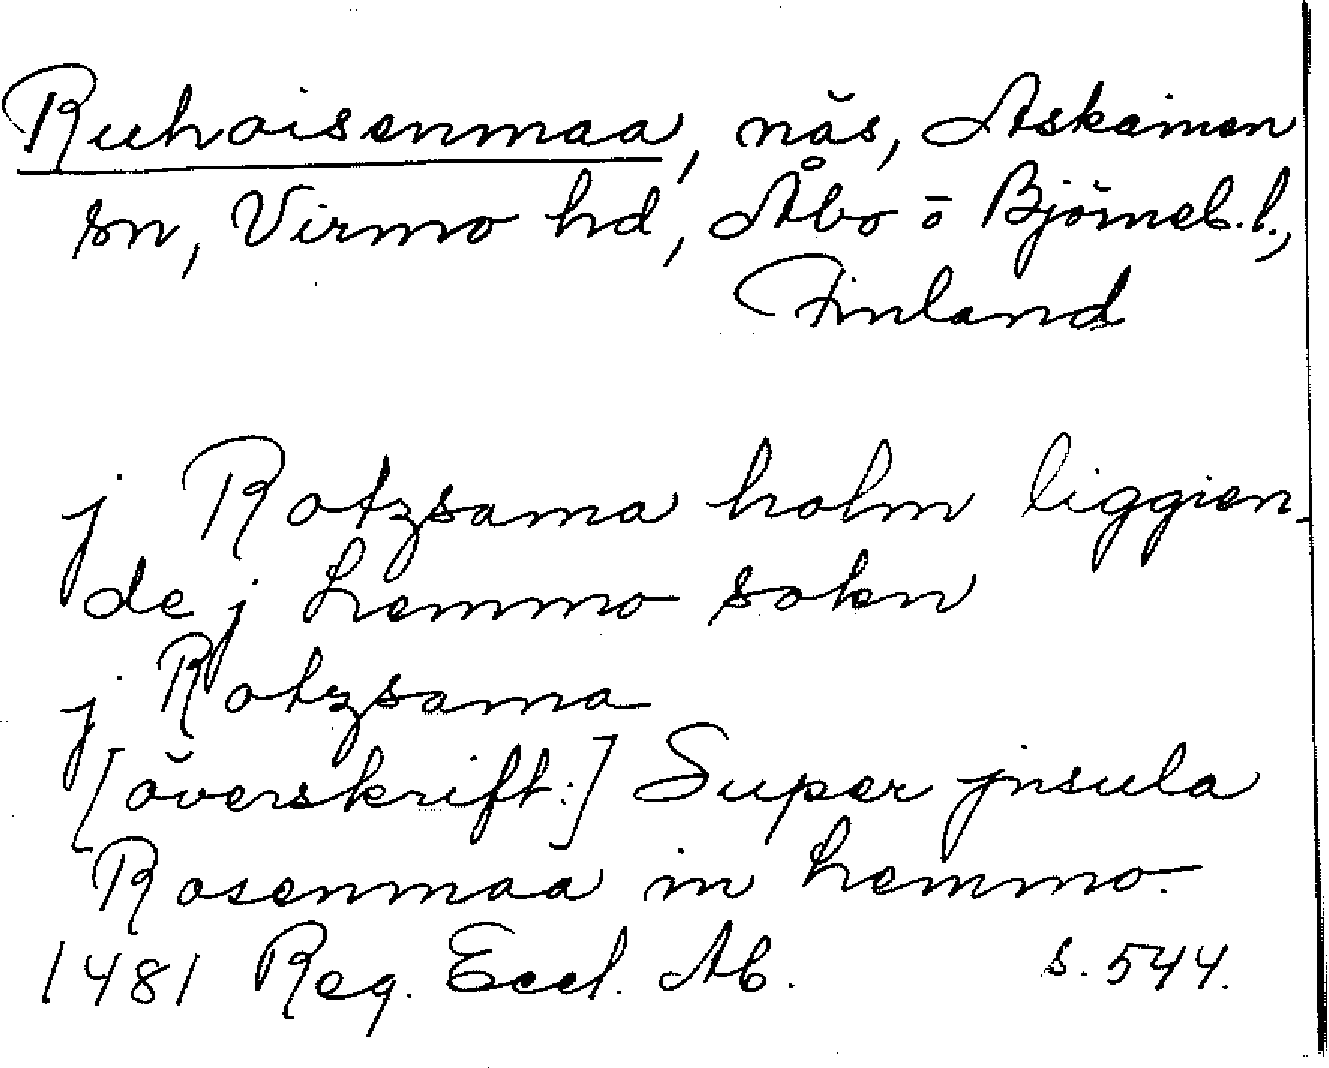 Ruhoisenmaa, näs, Askainen
sn, Virmo hd, Åbo o Björneb. l.,
Finland
j Rotzsama holm liggien-
de j hemmo sokn
j Rotzsama
[överskrift:] Super jnsula
Rosenmaa in hemmo.
1481 Reg. Eccl. Ab. s. 544.